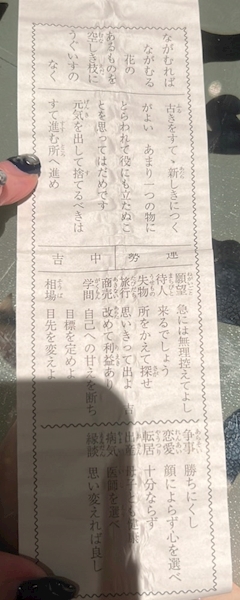 ながむれば
ながむる
花の
あるものを
空しき枝に
うぐいすの
なく
古きをすて、新しきにつく
がよい あまり一つの物に
とらわれて役にも立たぬこ
とを思ってはだめです
元気を出して捨てるべきは
すて進む所へ進め
運勢 中吉
願望 急には無理控えてよし
待人 来るでしょう
失物 所をかえて探せ
旅行 思いきって出よ 吉
商売 改めて利益あり
学問 自己への甘えを断ち
目標を定めよ
相場 目先を変えよ
争事 勝ちにくし
恋愛 顔によらず心を選べ
転居 十分ならず
出産 母子とも健康
病気 医師を選べ
縁談 思い変えれば良し